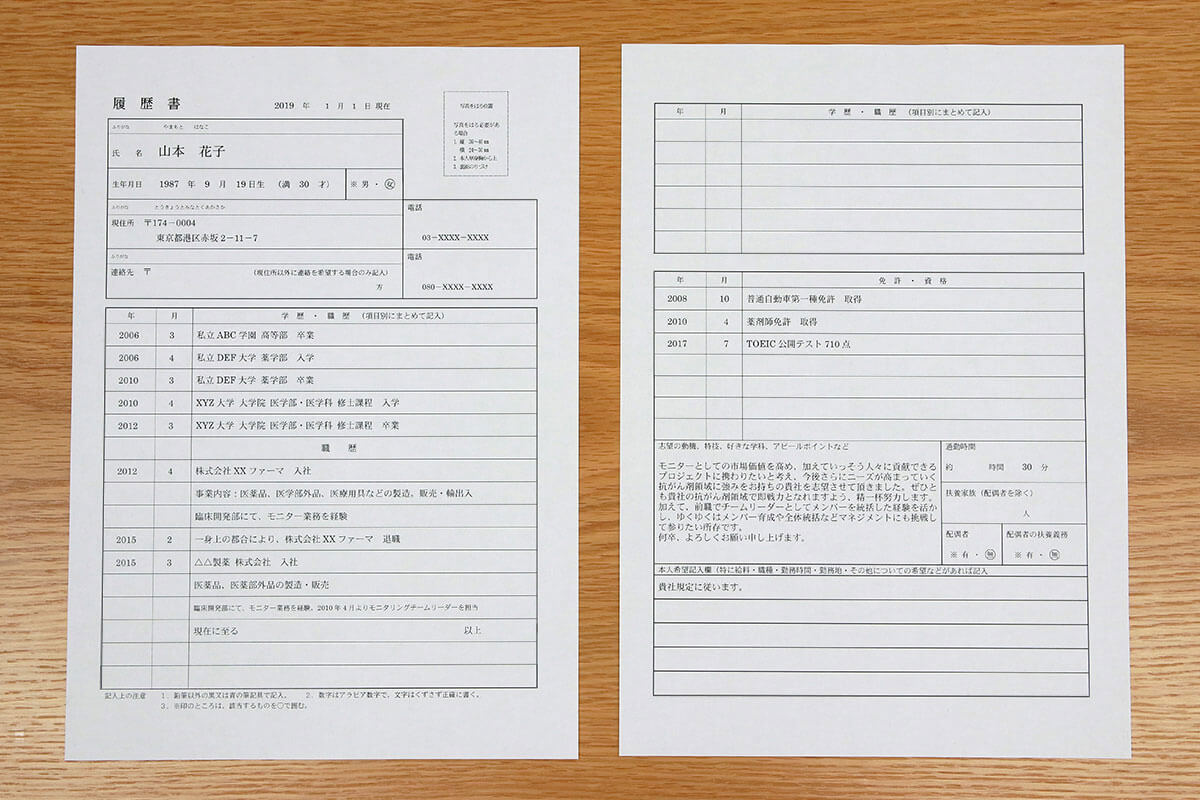 履 歴 書
2019 年 1 月 1 日 現在
写真をはる位置
写真をはる必要がある場合
1. 縦 36〜40 mm
横 24〜30 mm
2. 本人単身胸から上
3. 裏面のりづけ
ふりがな やまもと はなこ
氏 名 山本 花子
生年月日 1987 年 9 月 19日生 (満 30 才) ※ 男 ・ 女
ふりがな とうきょうとみなとくあかさか
現住所 〒174−0004
東京都港区赤坂 2−11−7
電話
03−XXXX−XXXX
ふりがな
連絡先 〒 (現住所以外に連絡を希望する場合のみ記入)
方
電話
080−XXXX−XXXX
年 月 学 歴 ・ 職 歴 (項目別にまとめて記入)
2006 3 私立 ABC 学園 高等部 卒業
2006 4 私立 DEF 大学 薬学部 入学
2010 3 私立 DEF 大学 薬学部 卒業
2010 4 XYZ 大学 大学院 医学部・医学科 修士課程 入学
2012 3 XYZ 大学 大学院 医学部・医学科 修士課程 卒業
職 歴
2012 4 株式会社 XX ファーマ 入社
事業内容：医薬品、医学部外品、医療用具などの製造、販売・輸出入
臨床開発部にて、モニター業務を経験
2015 2 一身上の都合により、株式会社 XX ファーマ 退職
2015 3 △△製薬 株式会社 入社
医薬品、医薬部外品の製造・販売
臨床開発部にて、モニター業務を経験。2010 年 4 月よりモニタリングチームリーダーを担当
現在に至る 以上
記入上の注意 1．鉛筆以外の黒又は青の筆記具で記入。 2．数字はアラビア数字で、文字はくずさず正確に書く。
3．※印のところは、該当するものを○で囲む。
年 月 学 歴 ・ 職 歴 (項目別にまとめて記入)
年 月 免 許 ・ 資 格
2008 10 普通自動車第一種免許 取得
2010 4 薬剤師免許 取得
2017 7 TOEIC 公開テスト 710 点
志望の動機、特技、好きな学科、アピールポイントなど
モニターとしての市場価値を高め、加えていっそう人々に貢献できる
プロジェクトに携わりたいと考え、今後さらにニーズが高まっていく
抗がん剤領域に強みをお持ちの貴社を志望させて頂きました。ぜひと
も貴社の抗がん剤領域で即戦力となれますよう、精一杯努力します。
加えて、前職でチームリーダーとしてメンバーを統括した経験を活か
し、ゆくゆくはメンバー育成や全体統括などマネジメントにも挑戦し
て参りたい所存です。
何卒、よろしくお願い申し上げます。
通勤時間
約 時間 30 分
扶養家族 (配偶者を除く)
人
配偶者
※ 有 ・ 無
配偶者の扶養義務
※ 有 ・ 無
本人希望記入欄 (特に給料・職種・勤務時間・勤務地・その他についての希望などがあれば記入
貴社規定に従います。